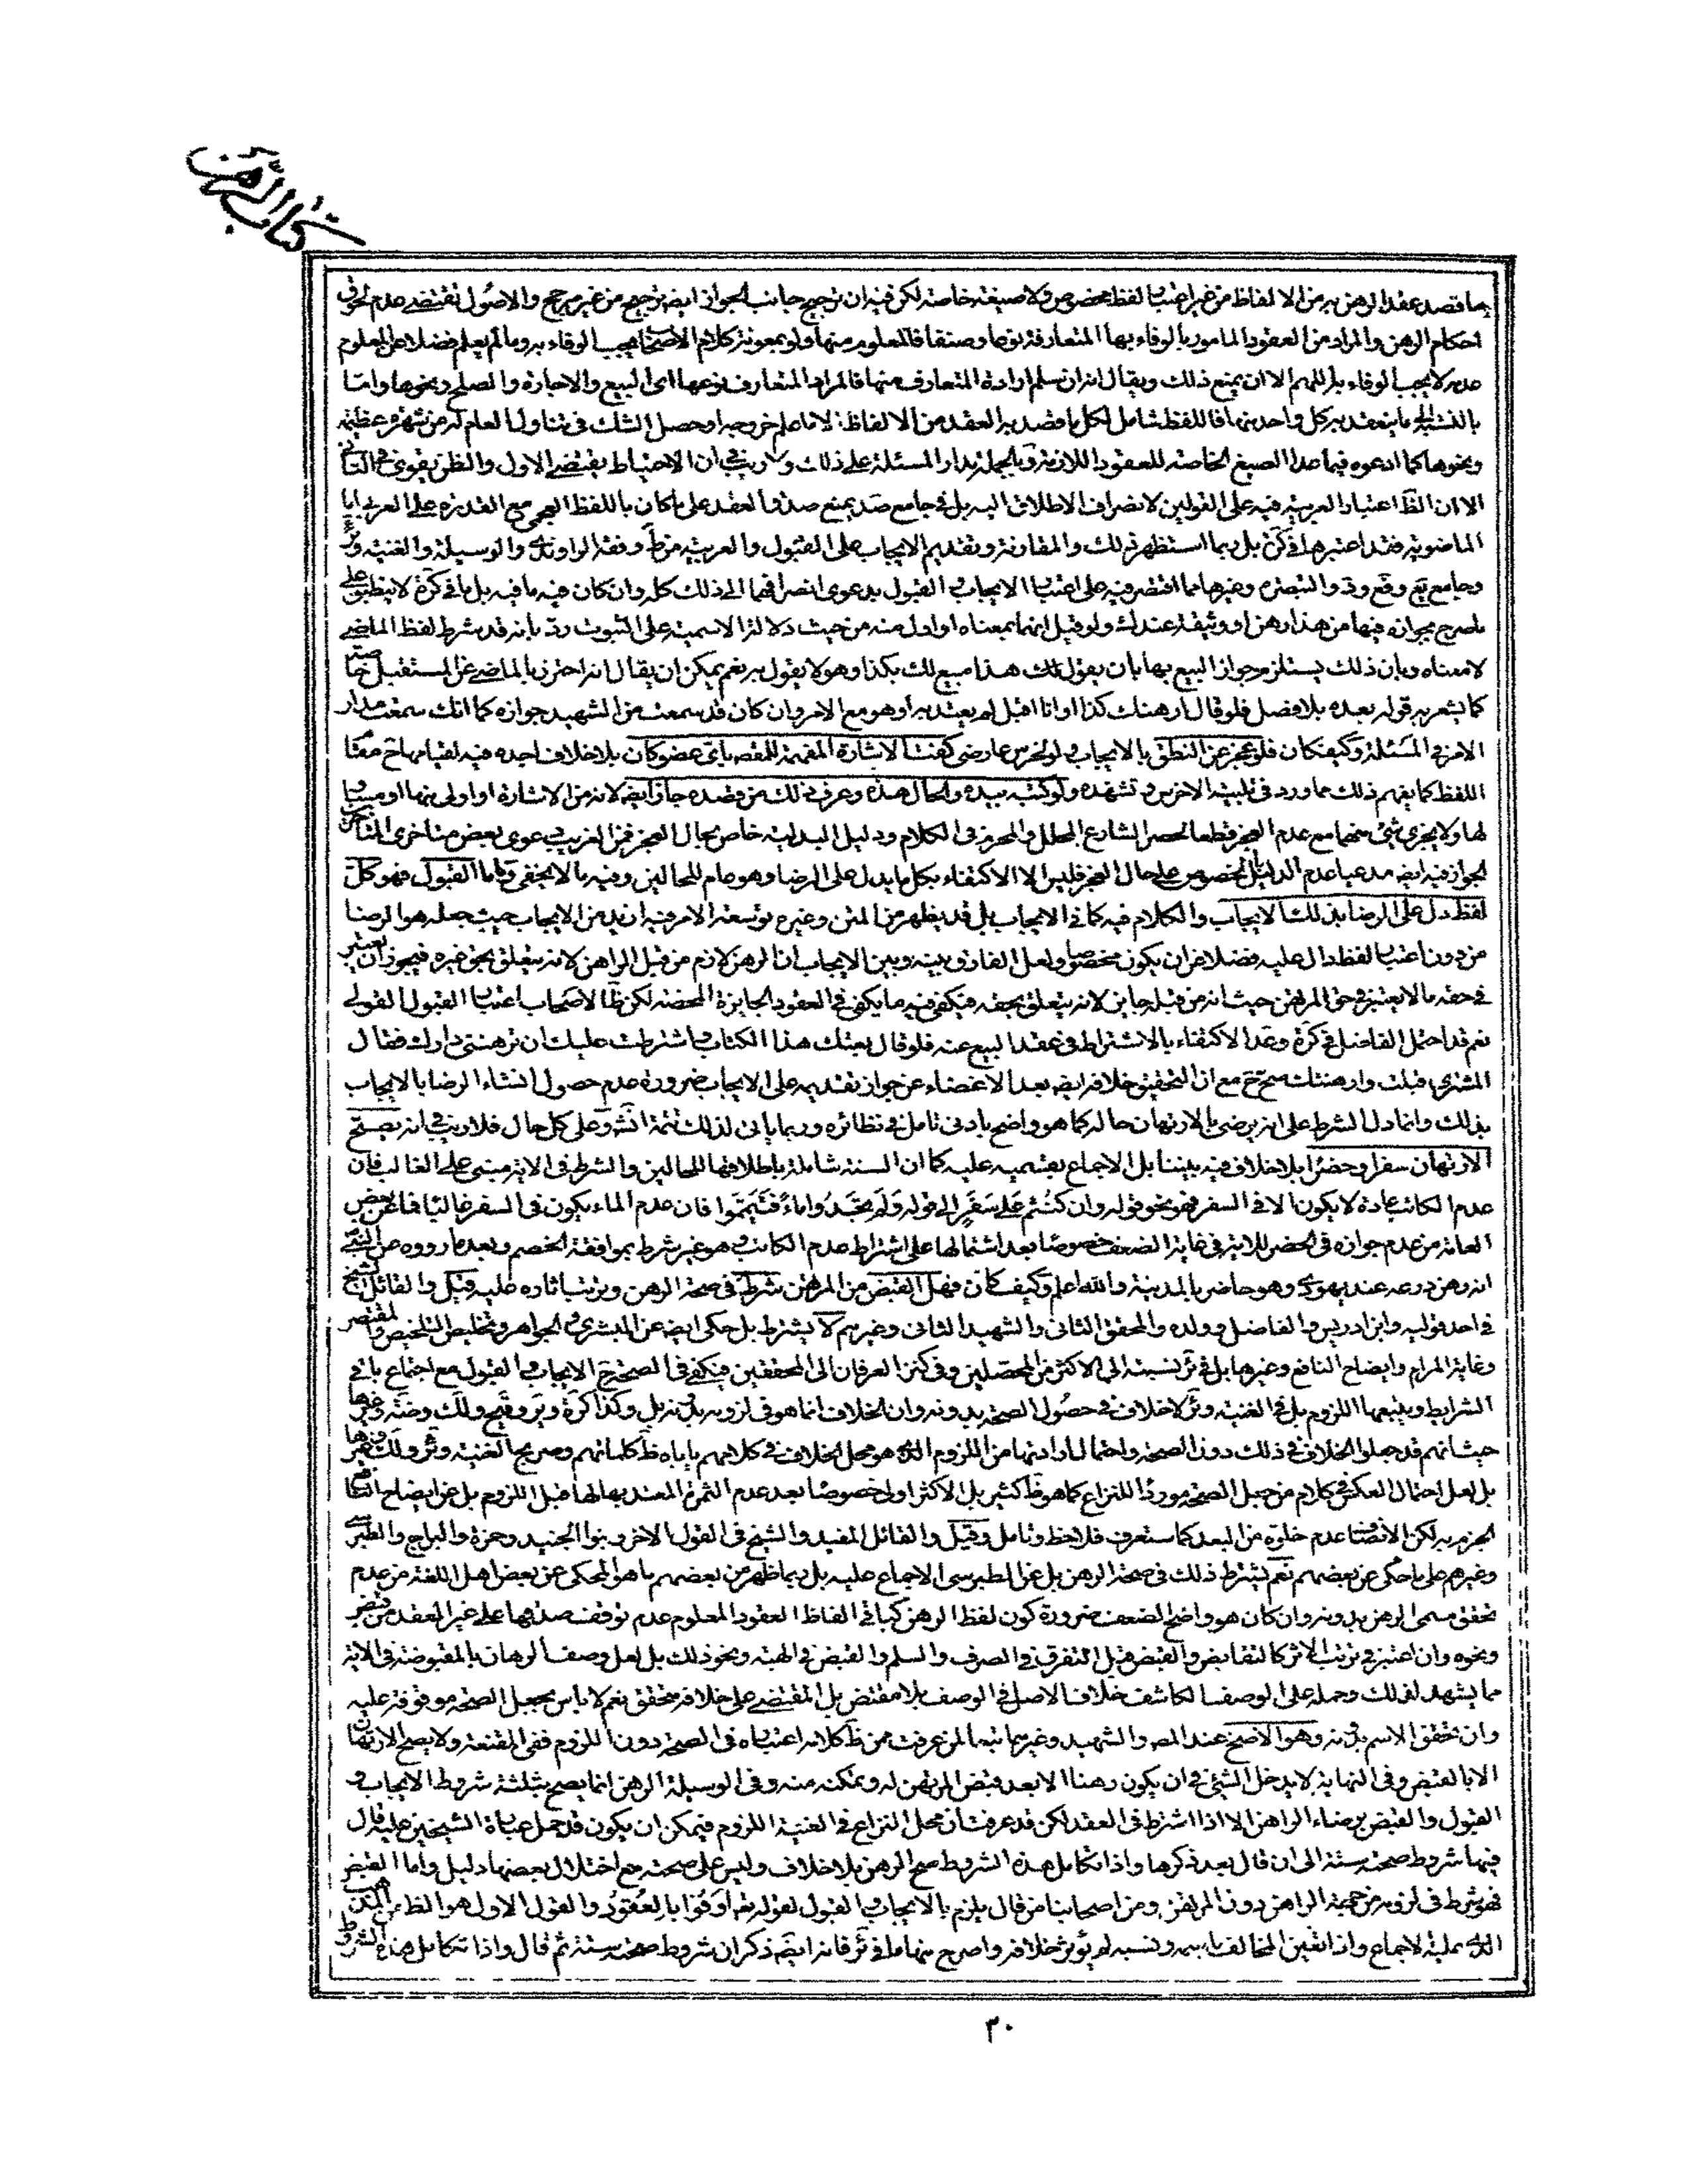 كتاب الرهن
ما قصد عقد الرهن به من الالفاظ من غير اعتبار لفظ مخصوص ولا صيغة خاصة لكن فيه ان ترجيح جانب الجواز ايضه ترجيح من غير مرجح والاصول تقتضى عدم لحوق
احكام الرهن والمراد من العقود المامور بالوفاء بها المتعارفة نوعا وصنفا فالمعلوم منها ولو بمعونة كلام الاصحاب يجب الوفاء به وما لم يعلم فضلا عن المعلوم
عدمه لا يجب الوفاء به اللهم الا ان يمنع ذلك ويقال انه ان سلم ارادة المتعارف منها فالمراد المتعارف نوعها اى البيع والاجارة والصلح ونحوها واما
بالنسبة الى ما ينعقد به كل واحد منها فاللفظ شامل لكل ما قصد به العقد من الالفاظ الا ما علم خروجه او حصل الشك فى تناول العام له من شهرة عظيمة
ونحوها كما ادعوه فيما عدا الصيغ الخاصة للعقود اللازمة وبالجملة مدار المسئلة على ذلك ولا ريب فى ان الاحتياط يقتضى الاول والظن يقوى فى الثانى
الا ان الظ اعتبار العربية فيه على القولين لانصراف الاطلاق اليه بل فى جامع صد يمنع صدق العقد على ما كان باللفظ العجمى مع القدرة على العربى اما
الماضوية فقد اعتبرها فى كرة بل ربما استظهر ذلك والمقارنة وتقديم الايجاب على القبول والعربية من ط وفقه الراوندى والوسيلة والغنية وئر
وجامع يع وقع ود والتبصرة وغيرها مما اقتصر فيه على اعتبار الايجاب والقبول بدعوى انصرافهما الى ذلك كله وان كان فيه ما فيه بل ما فى كرة لا ينطبق على
ما صرح بجوازه فيها من هذا رهن او وثيقة عندك ولو قيل انهما بمعناه او ادل منه من حيث دلالة الاسمية على الثبوت رد بانه قد شرط لفظ الماضى
لا معناه وبان ذلك يستلزم جواز البيع بها بان يقول لك هذا مبيع لك بكذا وهو لا يقول به نعم يمكن ان يقال انه احترز بالماضى عن المستقبل خاصة
كما يشعر به قوله بعده بلا فصل فلو قال ارهنك كذا او انا اقبل لم يعتد به او هو مع الامر وان كان قد سمعت من الشهيد جوازه كما انك سمعت مدار
الامر فى المسئلة وكيف كان فلو عجز عن النطق بالايجاب ولو لخرس عارضى كفت الاشارة المفهمة للمقصه باى عضو كان بلا خلاف اجده فيه لقيامها ح مقام
اللفظ كما يفهم ذلك مما ورد فى تلبية الاخرس وتشهده ولو كتب بيده والحال هذه وعرف ذلك من قصده جاز ايضه لانه من الاشارة او اولى منها او مساو
لها ولا يجزى شئ منهما مع عدم العجز قطعا لحصر الشارع المحلل والمحرم فى الكلام ودليل البدلية خاص بحال العجز فمن الغريب دعوى بعض متاخرى المتاخرين
الجواز فيه ايضه مدعيا عدم الدليل بالخصوص على حال العجز فليس الا الاكتفاء بكل ما يدل على الرضا وهو عام للحالين وفيه ما لا يخفى واما القبول فهو كل
لفظ دل على الرضا بذلك الايجاب والكلام فيه كما فى الايجاب بل قد يظهر من المتن وغيره توسعة الامر فيه ازيد من الايجاب حيث جعله هو الرضا
من دون اعتبار لفظ دال عليه فضلا عن ان يكون مخصوصا ولعل الفارق بينه وبين الايجاب ان الرهن لازم من قبل الراهن لانه يتعلق بحق غيره فيجوز ان يعتبر
فى حقه ما لا يعتبر فى حق المرتهن حيث انه من قبله جايز لانه يتعلق بحقه فيكفى فيه ما يكفى فى العقود الجايزة المحضة لكن ظ الاصحاب اعتبار القبول القولى
نعم قد احتمل الفاضل فى كرة وعد الاكتفاء بالاشتراط فى عقد البيع عنه فلو قال بعتك هذا الكتاب واشترطت عليك ان ترهننى دارك فقال
المشترى قبلت ورهنتك صح ح مع ان التحقيق خلافه ايضه بعد الاغضاء عن جواز تقديمه على الايجاب ضرورة عدم حصول انشاء الرضا بالايجاب
بذلك وانما دل الشرط على انه يرضى بالارتهان حاله كما هو واضح بادنى تامل فى نظائره وربما ياتى لذلك تتمة انشه وعلى كل حال فلا ريب فى انه يصح
الارتهان سفرا وحضرا بلا خلاف فيه بيننا بل الاجماع بقسميه عليه كما ان السنة شاملة باطلاقها للحالين والشرط فى الاية مبنى على الغالب فان
عدم الكاتب عادة لا يكون الا فى السفر فهو نحو قوله وان كنتم على سفر الى قوله ولم تجدوا ماء فتيمموا فان عدم الماء يكون فى السفر غالبا فما عن بعض
العامة من عدم جوازه فى الحضر للاية فى غاية الضعف خصوصا بعد اشتمالها على اشتراط عدم الكاتب وهو غير شرط بموافقة الخصم وبعد ما رووه عن النبى
انه رهن درعه عند يهودى وهو حاضر بالمدينة والله اعلم وكيف كان فهل القبض من المرتهن شرط فى صحة الرهن وترتب اثاره عليه قيل والقائل الشيخ
فى احد قوليه وابن ادريس والفاضل وولده والمحقق الثانى والشهيد الثانى وغيرهم لا يشترط بل حكى ايضه عن الميسرى والجواهر وتخليص التلخيص والمقتصر
وغاية المرام وايضاح النافع وغيرها بل فى ئر نسبته الى الاكثر من المحصلين وفى كنز العرفان الى المحققين فيكفى فى الصحة ح الايجاب والقبول مع اجتماع باقى
الشرايط ويتبعها اللزوم بل فى الغنية وئر لا خلاف فى حصول الصحة بدونه وان الخلاف انما هو فى لزومه بدونه بل وكذا كرة وير وفتح ولك وضة وغيرها
حيث انهم قد جعلوا الخلاف فى ذلك دون الصحة واحتمال ارادتها من اللزوم الذى هو محل الخلاف فى كلامهم ياباه ظ كلماتهم وصريح الغنية وئر ولك وغيرها
بل لعل احتمال العكس فى كلام من جعل الصحة موردا للنزاع كما هو ظ كثير بل الاكثر اولى خصوصا بعد عدم الثمرة المعتد بها لها قبل اللزوم بل عن ايضاح النافع
الجزم به لكن الانصاف عدم خلوه من البعد كما ستعرف فلاحظ وتامل وقيل والقائل المفيد والشيخ فى القول الاخر وبنوا الجنيد وحمزة والبراج والطبرسى
وغيرهم على ما حكى عن بعضهم نعم يشترط ذلك فى صحة الرهن بل عن الطبرسى الاجماع عليه بل ربما ظهر من بعضهم ما هو المحكى عن بعض اهل اللغة من عدم
تحقق مسمى الرهن بدونه وان كان هو واضح الضعف ضرورة كون لفظ الرهن كباقى الفاظ العقود المعلوم عدم توقف صدقها على غير العقد من قبض
ونحوه وان اعتبر فى ترتب الاثر كالتقابض والقبض قبل التفرق فى الصرف والسلم والقبض فى الهبة ونحو ذلك بل لعل وصف الرهان بالمقبوضة فى الاية
مما يشهد لذلك وحمله على الوصف الكاشف خلاف الاصل فى الوصف بلا مقتض بل المقتضى على خلافه متحقق نعم لا باس بجعل الصحة موقوفة عليه
وان تحقق الاسم بدونه وهو الاصح عند المصه والشهيد وغيرهما تبعا لمن عرفت ممن ظ كلامه اعتباره فى الصحة دون اللزوم ففى المقنعة ولا يصح الارتهان
الا بالقبض وفى النهاية لا يدخل الشئ فى ان يكون رهنا الا بعد قبض المرتهن له وتمكنه منه وفى الوسيلة الرهن انما يصح بثلثة شروط الايجاب و
القبول والقبض برضاء الراهن الا اذا اشترط فى العقد لكن قد عرفت ان محل النزاع فى الغنية اللزوم فيمكن ان يكون قد حمل عبارة الشيخين عليه قال
فيها شروط صحته ستة الى ان قال بعد ذكرها واذا تكامل هذه الشروط صح الرهن بلا خلاف وليس على صحته مع اختلال بعضها دليل واما القبض
فهو شرط فى لزومه من جهة الراهن دون المرتهن ومن اصحابنا من قال يلزم بالايجاب والقبول لقوله تعه اوفوا بالعقود والقول الاول هو الظ من المذهب
الذى عليه الاجماع واذا تعين المخالف باسمه ونسبه لم يؤثر خلافه واصرح منها ما فى ئر فانه ايضه ذكر ان شروط صحته ستة ثم قال واذا تكامل هذه الشروط
٣٠